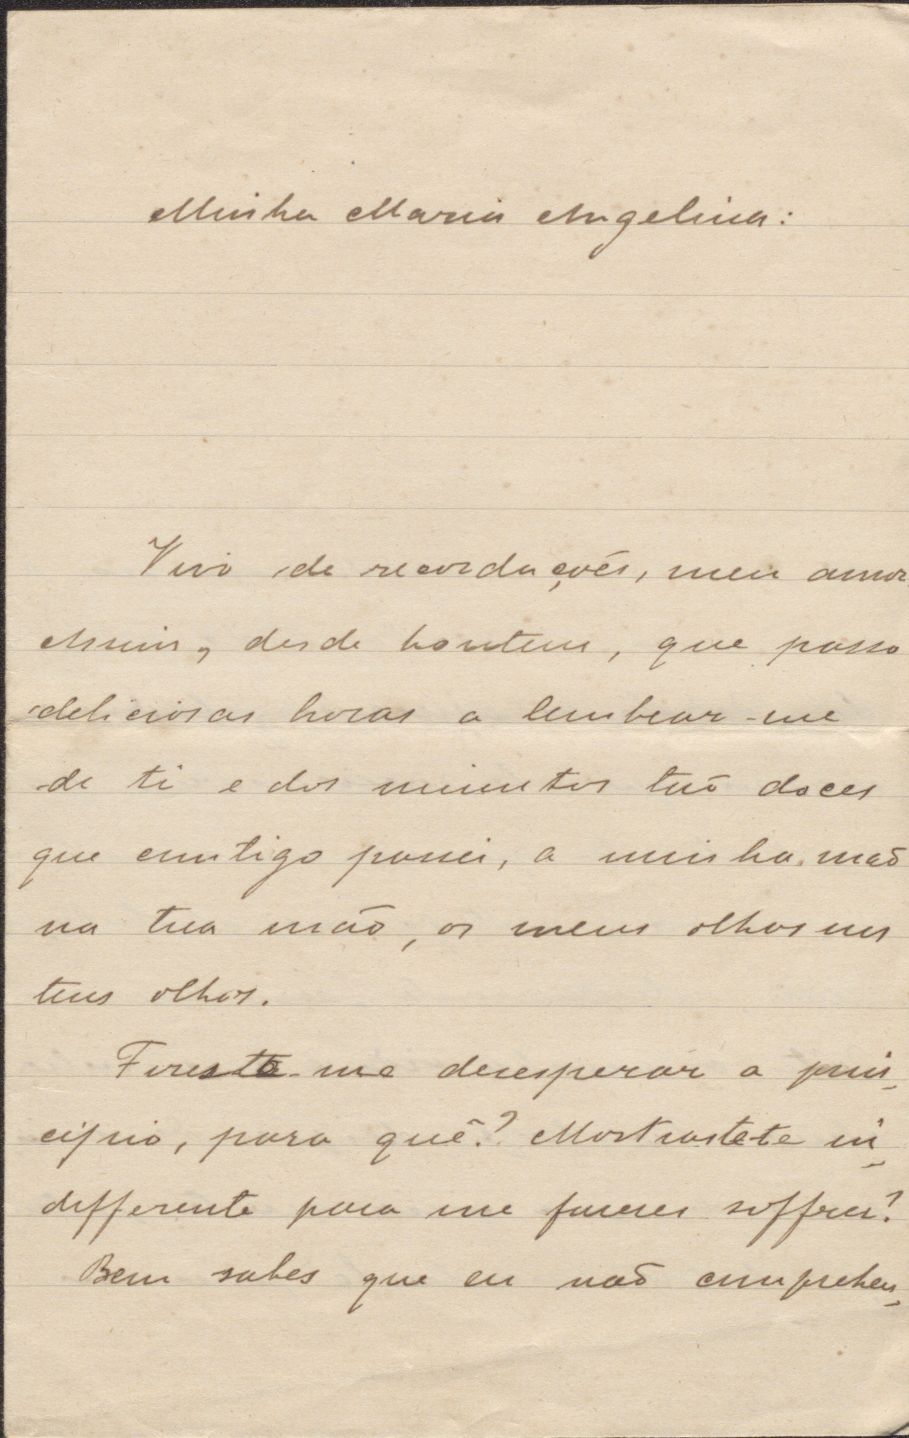 Minha Maria Angelina:
Vivo de recordações, meu amor
Assim, desde hontem, que passo
deliciosas horas a lembrar-me
de ti e dos minutos tão doces
que comtigo passei, a minha mão
na tua mão, os meus olhos nos
teus olhos.
Fizeste-me desesperar a prin-
cipio, para quê? Mostraste-te in-
differente para me fazeres soffrer?
Bem sabes que eu não comprehen-